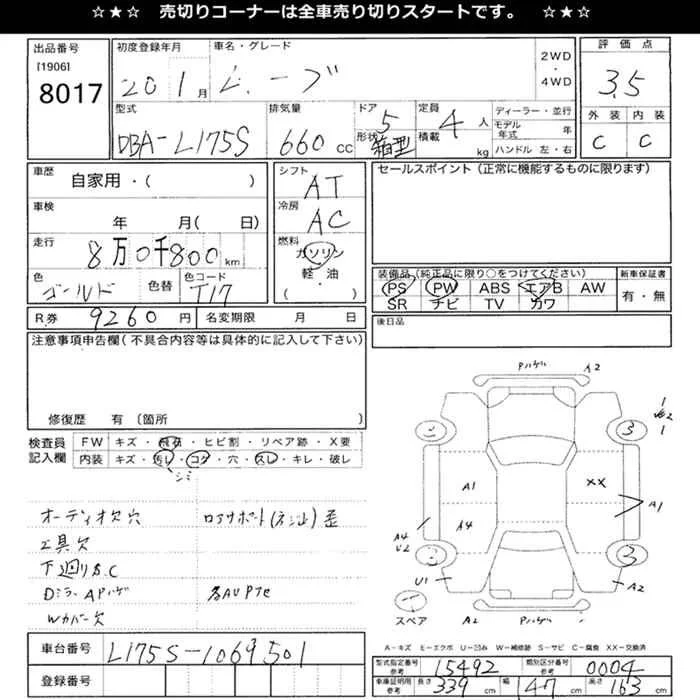 ☆★☆ 売切りコーナーは全車売り切りスタートです。 ☆★☆
出品番号
[1906]
8017
初度登録年月
20 1月
車名・グレード
ムーブ
2WD
・
4WD
評価点
3.5
外装 内装
C C
型式
DBA-L175S
排気量
660 CC
ドア 5
形状 箱型
定員 4 人
積載 kg
ディーラー・並行
モデル年式 年
ハンドル 左・右
車歴
自家用・( )
車検
年 月( 日)
走行
8万0千800 km
色
ゴールド
色替
色コード
T17
シフト
AT
冷房
AC
燃料
ガソリン
軽・油
・
( )
セールスポイント (正常に機能するものに限ります)
装備品(純正品に限り○をつけてください)
PS PW ABS エアB AW
SR ナビ TV カワ
新車保証書
有・無
R券 9260 円
名変期限 月 日
後日品
注意事項申告欄(不具合内容等は具体的に記入して下さい)
修復歴 有 〔箇所 〕
検査員
記入欄
FW キズ・飛石・ヒビ割・リペア跡・X要
内装 キズ・汚レ・コゲ・穴・スレ・キレ・破レ
シミ
オーディオ欠穴
工具欠
下廻りS.C
DミラーAPハゲ
Wカバー欠
車台番号 L175S-1069501
登録番号
Pハゲ A2
3
XX
A1
A1
A4
A4
U2
U1
3
A2
スペア
A2 Pハゲ
A-キズ E-エクボ U-凹み W-補修跡 S-サビ C-腐食 XX-交換済
型式指定番号 参考 15492
類別区分番号 参考 0004
車庫証明用 参考 長さ 339 cm 幅 147 cm 高さ 163 cm